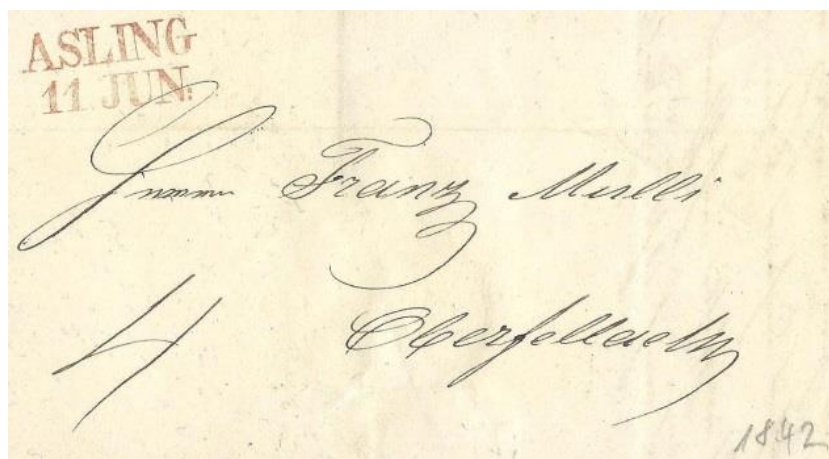 ASLING
11 JUN:
Herrn Franz Mulli
4 Obervellach
1842